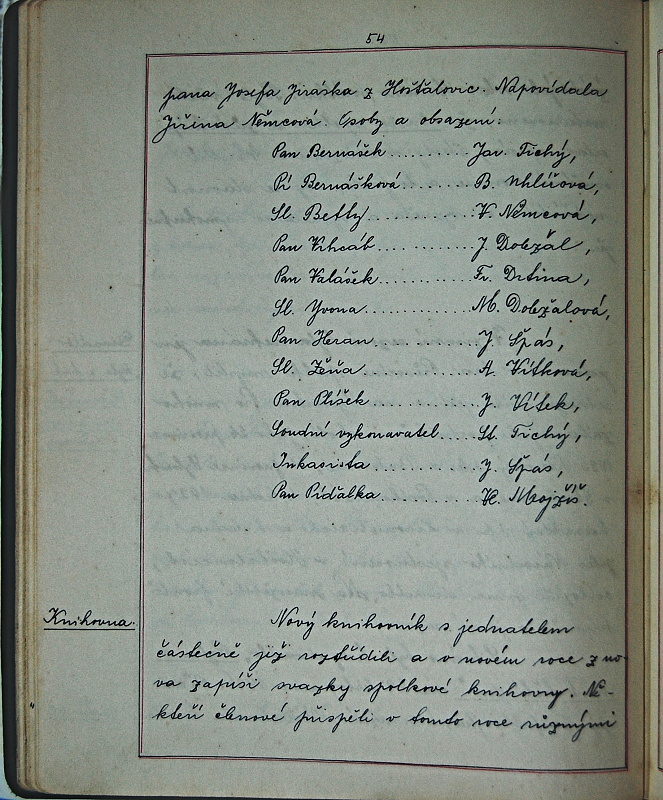 54
pana Josefa Jiráska z Hošťalovic. Napovídala
Jiřina Němcová. Osoby a obsazení:
Pan Bernášek.......... Jar. Tichý,
Pí Bernášková.......... B. Uhlířová,
Sl. Betty............ V. Němcová,
Pan Vrhcáb........... J. Doležal,
Pan Valášek.......... Fr. Drtina,
Sl. Yvona............ M. Doležalová,
Pan Heran............ J. Špás,
Sl. Žéňa............ A. Vítková,
Pan Plíšek........... J. Vítek,
Soudní vykonavatel.... St. Tichý,
Inkasista........... J. Špás,
Pan Píďalka.......... K. Mojžíš.
Knihovna.
Nový knihovník s jednatelem
částečně již roztřídili a v novém roce zno-
va zapíší svazky spolkové knihovny. Ně-
kteří členové přispěli v tomto roce různými